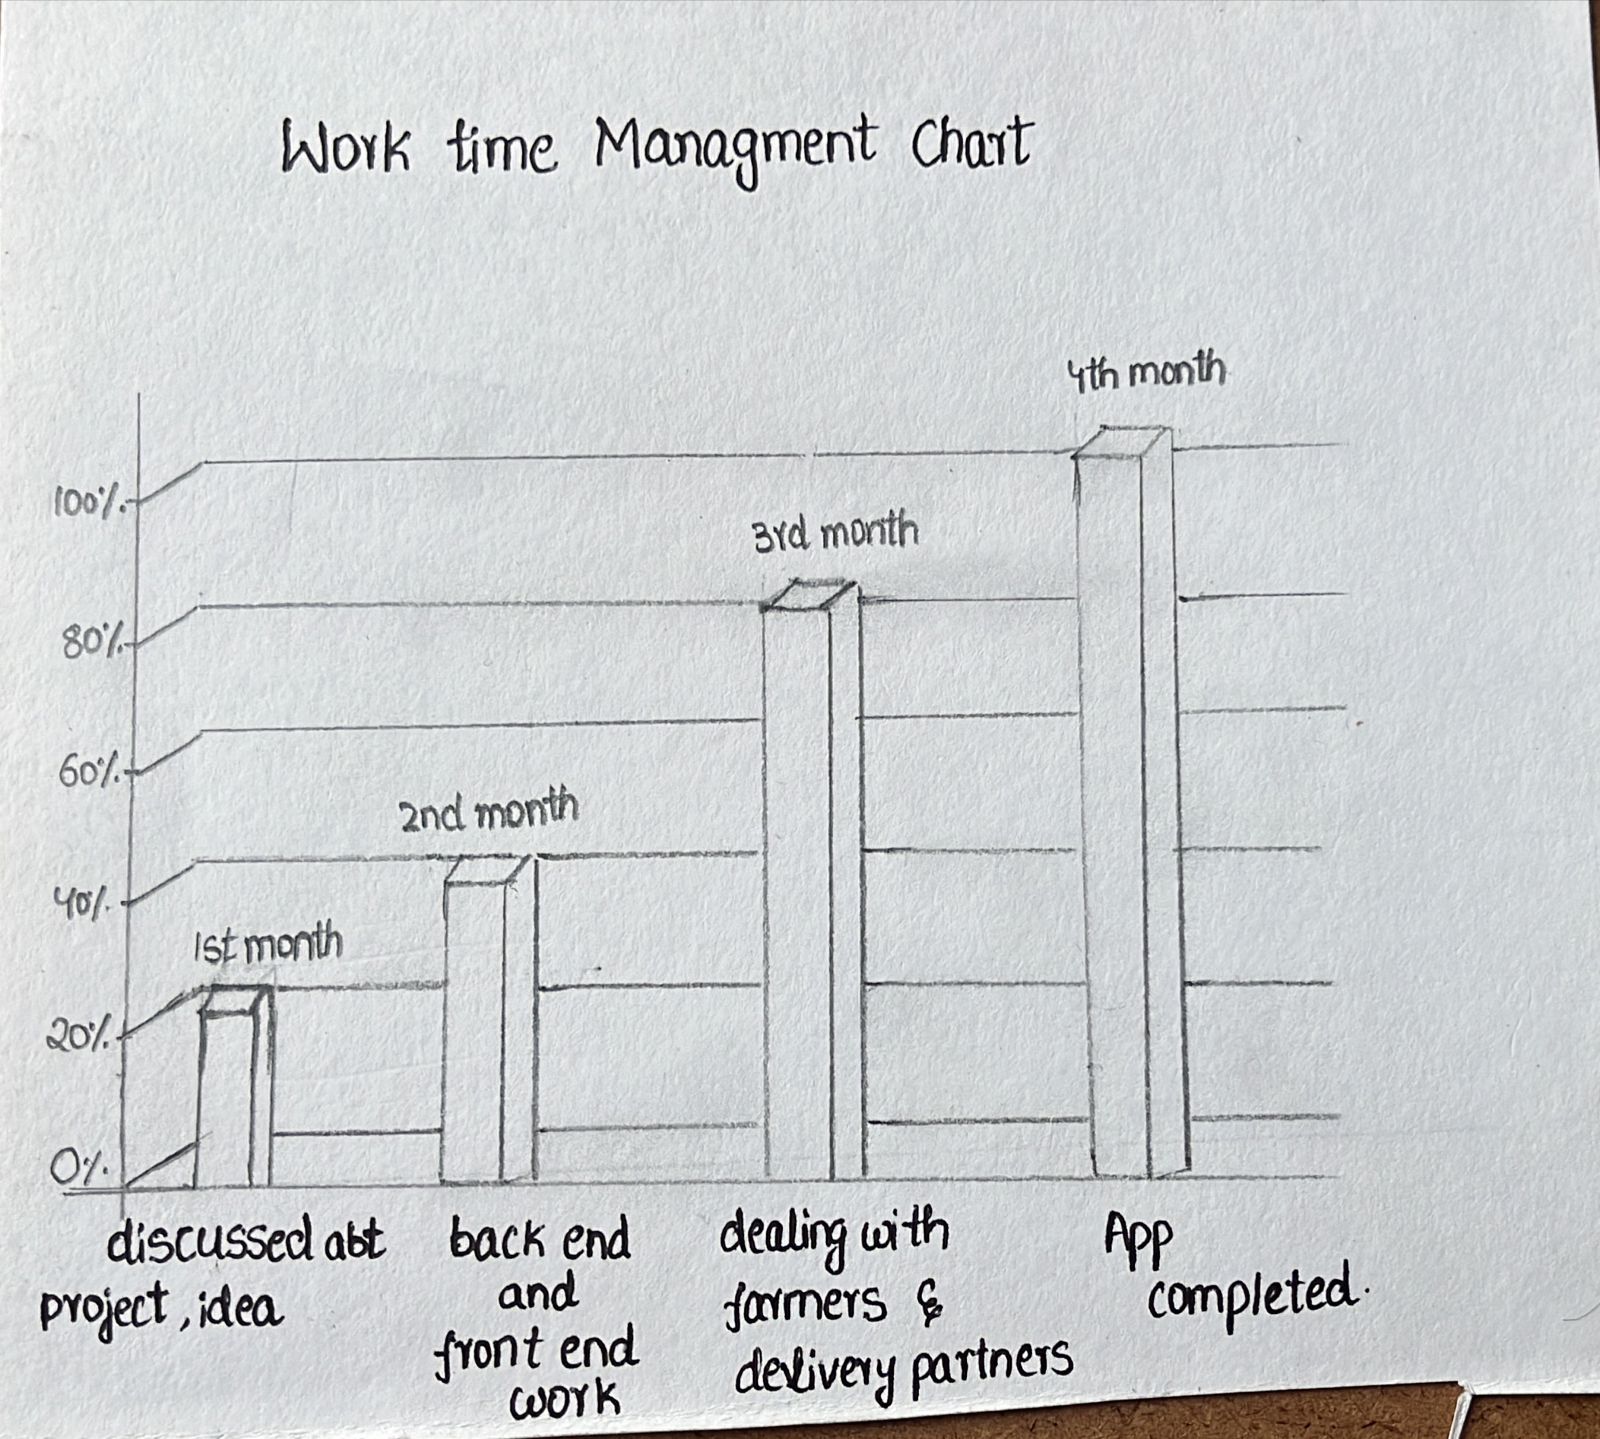 Work time Managment Chart
4th month
100%
3rd month
80%
60%
2nd month
40%
1st month
20%
0%
discussed abt
project, idea
back end
and
front end
work
dealing with
farmers &
delivery partners
App
completed.